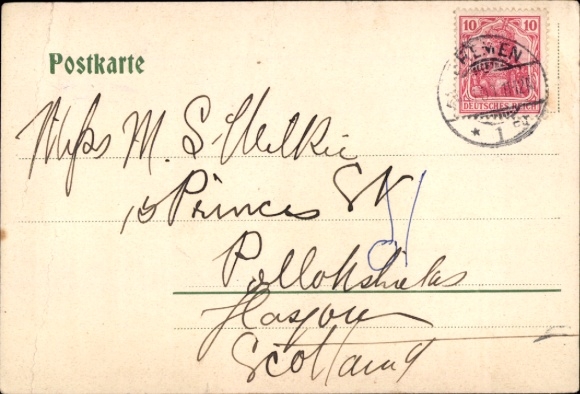 Postkarte
10 10
DEUTSCHES REICH
BREMEN
* 1
Miss M. S. Wilkie
15 Princes St
Pollokshields
Glasgow
Scotland